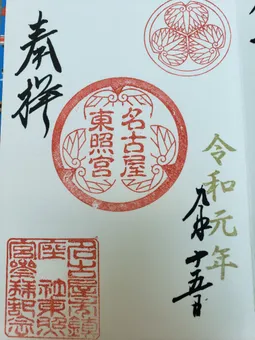 令和元年
九月十五日
名古屋
東照宮
奉拝